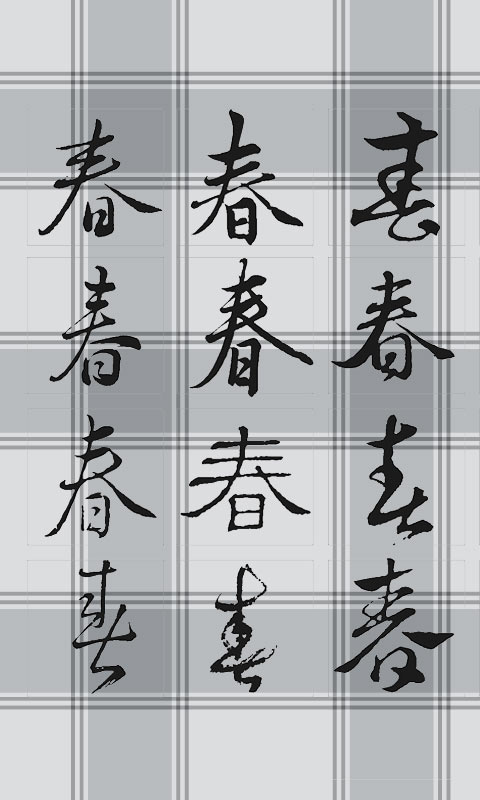 春 春 春
春 春 春
春 春 春
春 春 春